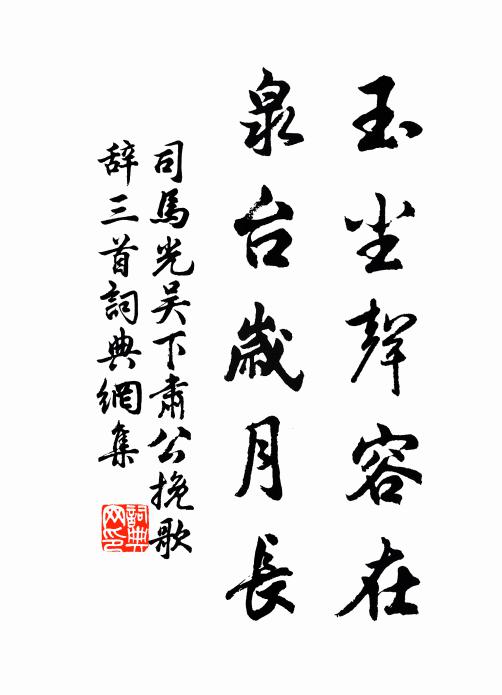 玉尘聲容在
泉台歲月長
司馬光吴下肅公挽歌
辞三首詞典網集
詞典网印